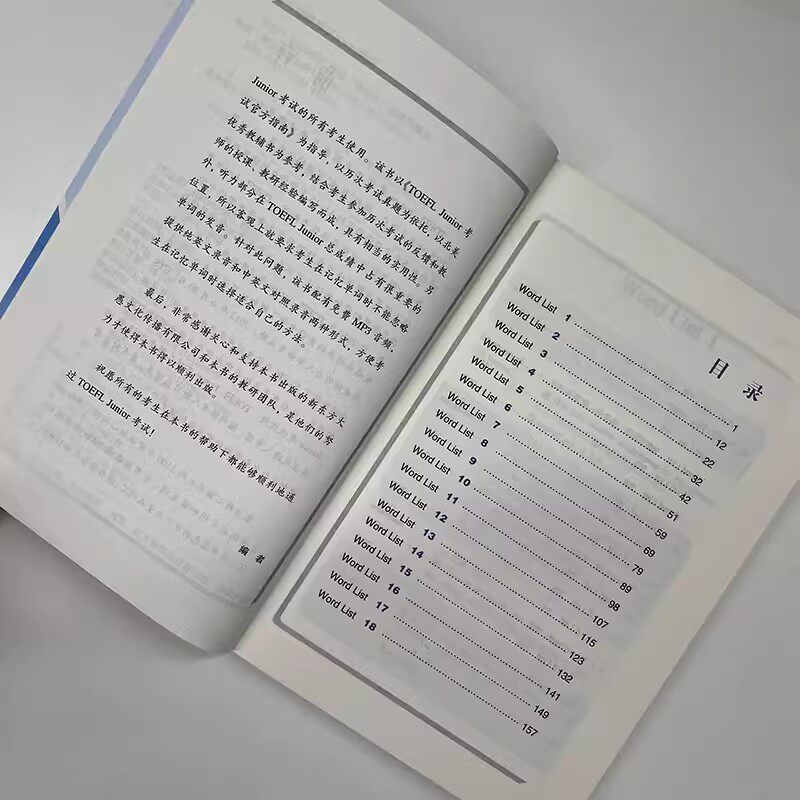 Junior 考试的所有考生使用。该书以《TOEFL Junior 考
试官方指南》为指导，以历次考试真题为依托，以北美
优秀教辅书为参考，结合考生参加历次考试的反馈和教
师的授课、教研经验编写而成，具有相当的实用性。另
外，听力部分在 TOEFL Junior 总成绩中占有很重要的
位置，所以客观上就要求考生在记忆单词时不能忽略
单词的发音。针对此问题，该书配有免费 MP3 音频，
提供纯英文录音和中英文对照录音两种形式，方便考
生在记忆单词时选择适合自己的方法。
最后，非常感谢关心和支持本书出版的新东方大
愚文化传播有限公司和本书的教研团队，是他们的努
力才使得本书得以顺利出版。
祝愿所有的考生在本书的帮助下都能够顺利地通
过 TOEFL Junior 考试！
编 者
目 录
Word List 1 ........ 1
Word List 2 ........ 12
Word List 3 ........ 22
Word List 4 ........ 32
Word List 5 ........ 42
Word List 6 ........ 51
Word List 7 ........ 59
Word List 8 ........ 69
Word List 9 ........ 79
Word List 10 ........ 89
Word List 11 ........ 98
Word List 12 ........ 107
Word List 13 ........ 115
Word List 14 ........ 123
Word List 15 ........ 132
Word List 16 ........ 141
Word List 17 ........ 149
Word List 18 ........ 157